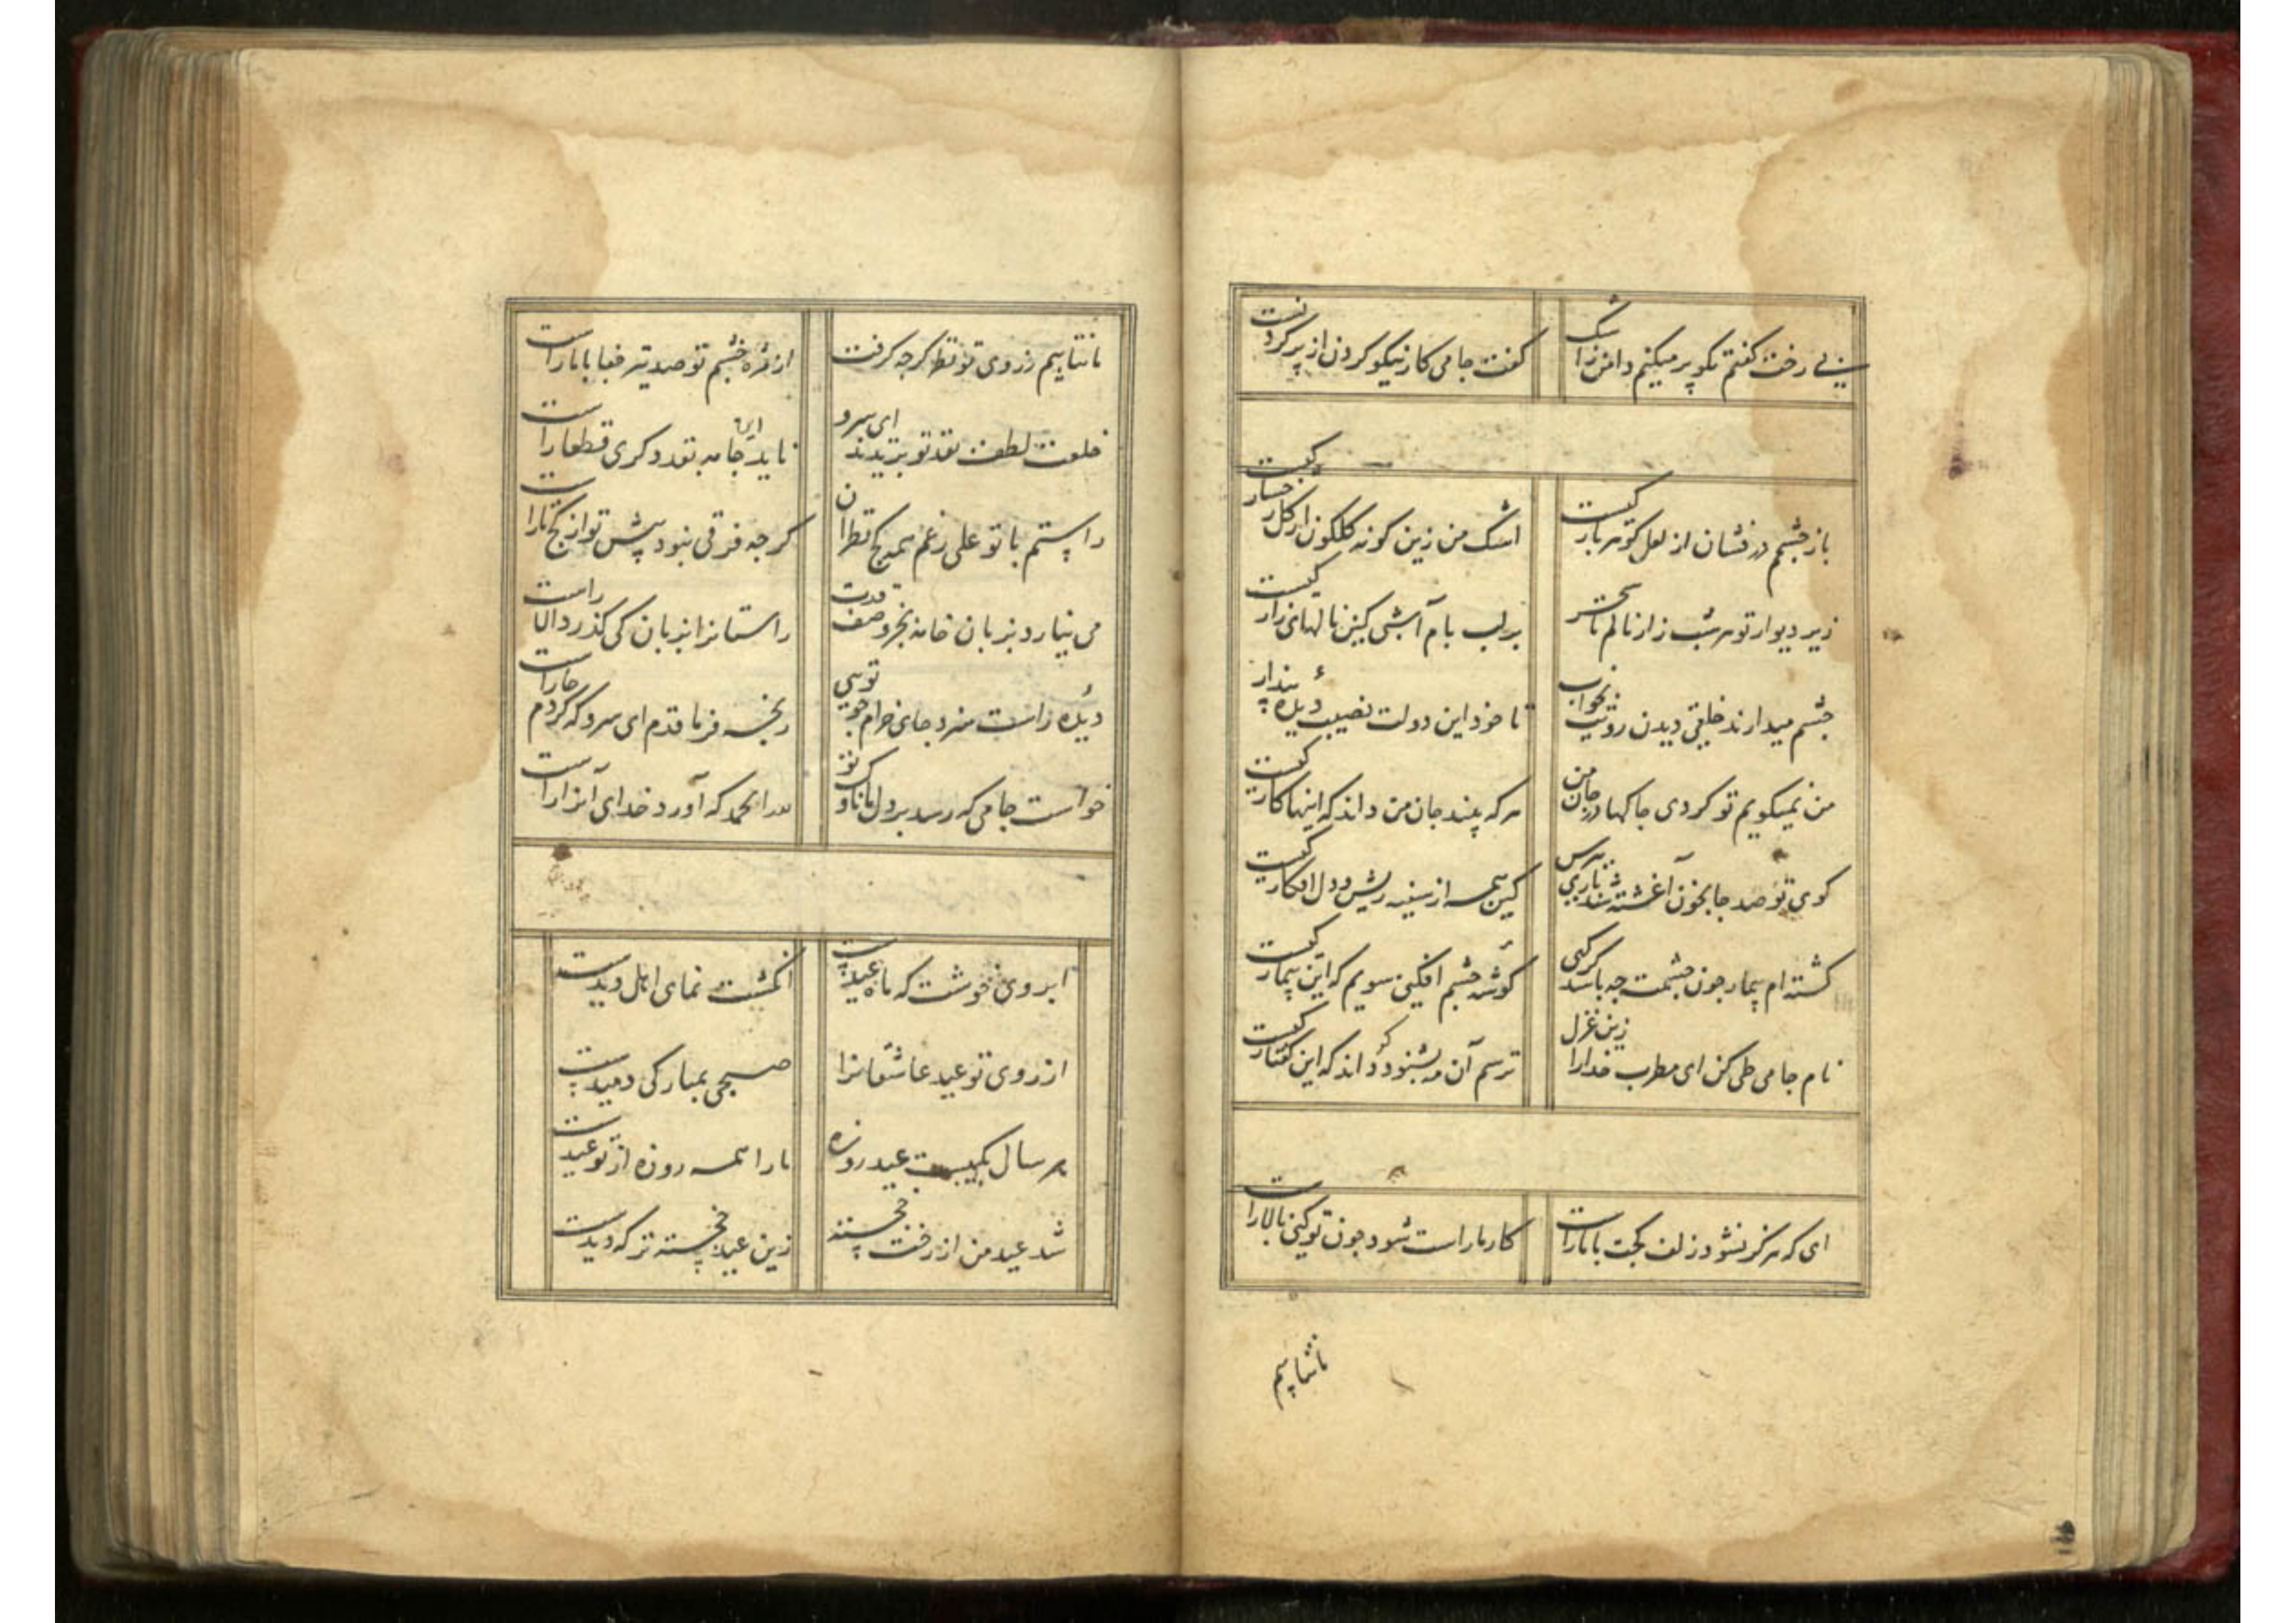 بی رخت گفتم نکو پر میکنم دامن ز اشک
گفت جامی کار نیکو کردن از پر کردنست
باز چشمم در فشان از لعل گوهر بار کیست
اشک من زین گونه گلگون از گل رخسار کیست
زیر دیوار تو هر شب زار نالم تا سحر
بر لب بام آ شبی کین نالهای زار کیست
چشم میدارند خلقی دیدن رویت بخواب
تا خود این دولت نصیب دیدهٔ بیدار
من نمیگویم تو کردی چاکها در جان من
هر که بیند جان من داند که اینها کار کیست
کوی تو صد جا بخون آغشته شد باری بپرس
کین همه از سینه ریش و دل افکار کیست
گشته ام بیمار چون چشمت چه باشد گر گهی
گوشه چشم افکنی سویم که این بیمار کیست
نام جامی طی کن ای مطرب خدارا زین غزل
ترسم آن مه بشنود داند که این گفتار کیست
ای که هرگز نشود زلف کجت با ما راست
کار ما راست شود چون تو کنی بالا راست
ما نتابیم ز روی تو نظر گر چه گرفت
از مژه چشم تو صد تیر جفا با ما راست
خلعت لطف بقد تو بریدند ای سرو
ناید این جامه بقد دگری قطعا راست
راستم با تو علی رغم همه کج نظران
گر چه فرقی نبود پیش تو از کج تا راست
می نیارد بزبان خامه بجز وصف قدت
راستانرا بزبان کی گذرد الا راست
دیده راست سزد جای خرام چو تویی
رنجه فرما قدم ای سرو که کردم جا راست
خواست جامی که رسد بر دل ما ناوک تو
لله الحمد که آورد خدای آنرا راست
ابروی خوشت که ماه عیدست
انگشت نمای اهل دیدست
از روی تو عید عاشقانرا
صبحی بمبارکی دمیدست
هر سال یکیست عید روزه
ما را همه روزه از تو عیدست
شد عید من از رخت خجسته
زین عید خجسته تر که دیدست
ما نتابیم